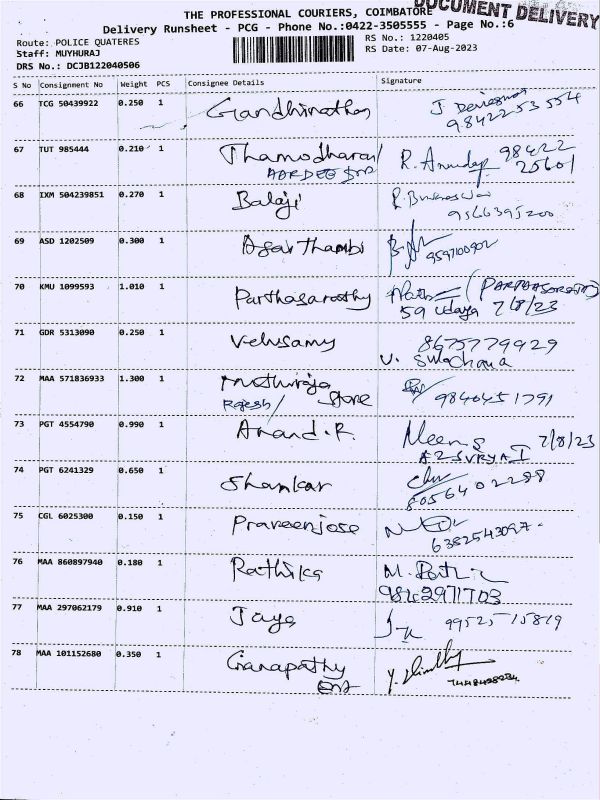 DOCUMENT DELIVERY
THE PROFESSIONAL COURIERS, COIMBATORE
Delivery Runsheet - PCG - Phone No.:0422-3505555 - Page No.:6
Route: POLICE QUATERES
Staff: MUYHURAJ
DRS No.: DCJB122040506
RS No.: 1220405
RS Date: 07-Aug-2023
S No Consignment No Weight PCS Consignee Details Signature
66 TCG 50439922 0.250 1 Gandhinathan J
98422 53 554
67 TUT 985444 0.210 1 Thamodharan R. Anudep 98422
25601
68 IXM 504239851 0.270 1 Balaji
9566395200
69 ASD 1202509 0.300 1 Asai Thambi
9597100902
70 KMU 1099593 1.010 1 Parthasarathy
59 Udaya 7/8/23
71 GDR 5313090 0.250 1 Velusamy 8675779929
V. Sulochana
72 MAA 571836933 1.300 1 Muthuraja
Rajesh/ Store 9840451791
73 PGT 4554790 0.990 1 Anand.R. Meena 7/8/23
74 PGT 6241329 0.650 1 Shankar
8056402288
75 CGL 6025300 0.150 1 Praveenjose
6382543097
76 MAA 860897940 0.180 1 Rathika M.
9842971703
77 MAA 297062179 0.910 1 Jaya 99525 15819
78 MAA 101152680 0.350 1 Ganapathy